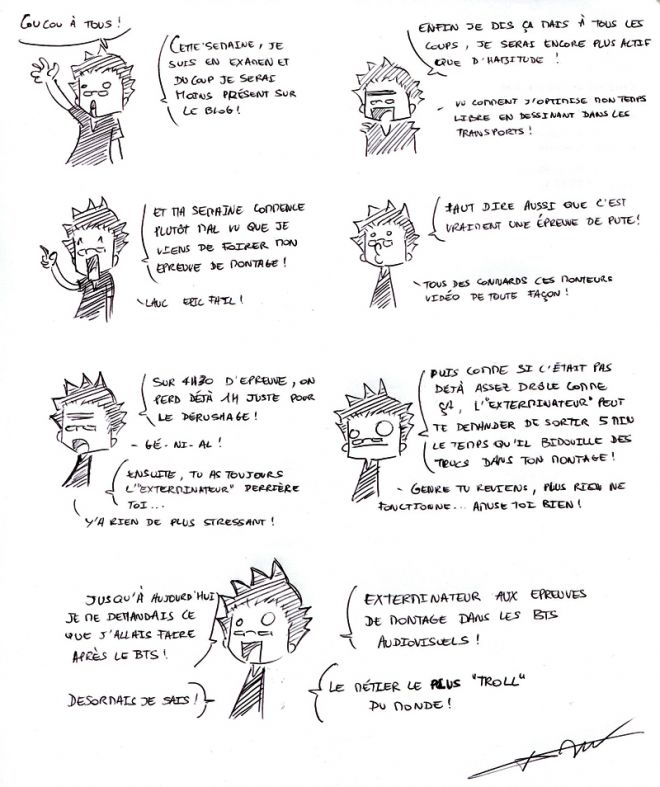 COUCOU À TOUS !
CETTE SEMAINE, JE
SUIS EN EXAMEN ET
DU COUP JE SERAI
MOINS PRÉSENT SUR
LE BLOG !
ENFIN JE DIS ÇA MAIS À TOUS LES
COUPS, JE SERAI ENCORE PLUS ACTIF
QUE D'HABITUDE !
- VU COMMENT J'OPTIMISE MON TEMPS
LIBRE EN DESSINANT DANS LES
TRANSPORTS !
ET MA SEMAINE COMMENCE
PLUTÔT MAL VU QUE JE
VIENS DE FOIRER MON
EPREUVE DE MONTAGE !
ERIC FAIL !
FAUT DIRE AUSSI QUE C'EST
VRAIMENT UNE ÉPREUVE DE PUTE !
TOUS DES CONNARDS CES MONTEURS
VIDÉO DE TOUTE FAÇON !
SUR 4H30 D'EPREUVE, ON
PERD DÉJÀ 1H JUSTE POUR
LE DÉRUSHAGE !
- GÉ-NI-AL !
ENSUITE, TU AS TOUJOURS
L'"EXTERMINATEUR" DERRIÈRE
TOI...
Y'A RIEN DE PLUS STRESSANT !
PUIS COMME SI C'ÉTAIT PAS
DÉJÀ ASSEZ DRÔLE COMME
ÇA, L'"EXTERMINATEUR" PEUT
TE DEMANDER DE SORTIR 5 MIN
LE TEMPS QU'IL BIDOUILLE DES
TRUCS DANS TON MONTAGE !
- GENRE TU REVIENS, PLUS RIEN NE
FONCTIONNE... AMUSE TOI BIEN !
JUSQU'À AUJOURD'HUI
JE ME DEMANDAIS CE
QUE J'ALLAIS FAIRE
APRÈS LE BTS !
DESORMAIS JE SAIS !
EXTERMINATEUR AUX EPREUVES
DE MONTAGE DANS LES BTS
AUDIOVISUELS !
LE MÉTIER LE PLUS "TROLL"
DU MONDE !